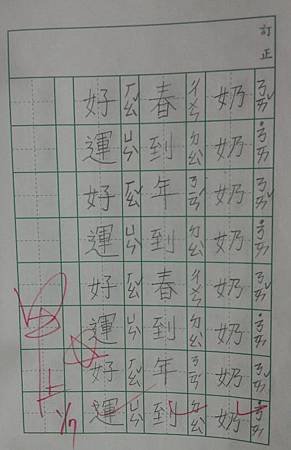 訂正
ㄋㄞˇ ˙ㄋㄞ ㄋㄞˇ ˙ㄋㄞ ㄋㄞˇ ˙ㄋㄞ ㄋㄞˇ ˙ㄋㄞ
奶奶奶奶奶奶奶奶
ㄔㄨㄣ ㄉㄠˋ ㄋㄧㄢˊ ㄉㄠˋ ㄔㄨㄣ ㄉㄠˋ ㄋㄧㄢˊ ㄉㄠˋ
春到年到春到年到
ㄏㄠˇ ㄩㄣˋ ㄏㄠˇ ㄩㄣˋ ㄏㄠˇ ㄩㄣˋ ㄏㄠˇ ㄩㄣˋ
好運好運好運好運
甲上
1/7